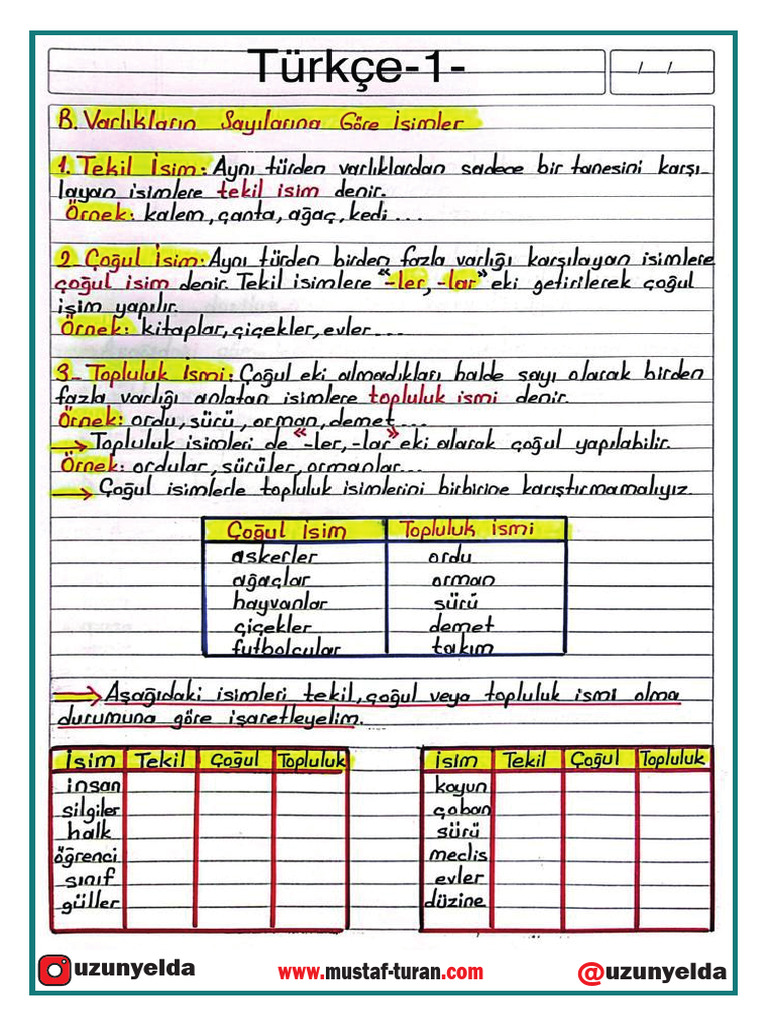 Türkçe-1-
/ /
B. Varlıkların Sayılarına Göre İsimler
1. Tekil İsim: Aynı türden varlıklardan sadece bir tanesini karşı-
layan isimlere tekil isim denir.
Örnek: kalem, çanta, ağaç, kedi ...
2- Çoğul İsim: Aynı türden birden fazla varlığı karşılayan isimlere
çoğul isim denir. Tekil isimlere "-ler, -lar" eki getirilerek çoğul
işim yapılır.
Örnek: kitaplar, çiçekler, evler ...
3- Topluluk İsmi: Çoğul eki almadıkları halde sayı olarak birden
fazla varlığı anlatan isimlere topluluk ismi denir.
Örnek: ordu, sürü, orman, demet ...
→ Topluluk isimleri de "-ler, -lar" eki alarak çoğul yapılabilir.
Örnek: ordular, sürüler, ormanlar...
→ Çoğul isimlerle topluluk isimlerini birbirine karıştırmamalıyız.
Çoğul İsim Topluluk İsmi
askerler ordu
ağaçlar orman
hayvanlar sürü
çiçekler demet
futbolcular takım
→ Aşağıdaki isimleri tekil, çoğul veya topluluk ismi olma
durumuna göre işaretleyelim.
İsim Tekil Çoğul Topluluk İsim Tekil Çoğul Topluluk
insan koyun
silgiler çoban
halk sürü
öğrenci meclis
sınıf evler
güller düzine
uzunyelda www.mustaf-turan.com @uzunyelda